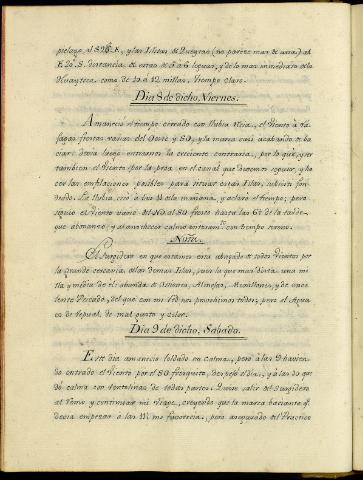 pielago al S 26° E, y las Islitas de Quegran (no parece mas de una) al
E 20° S. distancia de estas de 5 à 6 leguas, y de lo mas inmediato de la
Huayteca como de 10 à 12 millas. Tiempo claro.
Dia 8 de dicho, Viernes.
Amanecio el tiempo cerrado con lluvia recia, el Viento à ra-
fagas fuertes varias del Oeste y SO, y la marea casi acabando de ba
ciar; devia luego entrarnos la creciente contraria, por lo que, y ser
tambien el Viento por la proa en el canal que deviamos seguir, y ha
cer las enfilaciones posibles para situar estas Islas, subsisti fon-
deado. La lluvia cesó à las 11 de la mañana, y aclaró el tiempo; pero
siguio el Viento vario del NO al SO fresco hasta las 6 h. de la tarde
que abonanzó y al anochecer calmo enteram.te con tiempo sereno.
Nota.
El Surgidero en que estamos està abrigado de todos Vientos por
la grande cercania à las demas Islas, pues la que mas dista una mi-
lla y media de el: abunda de Quilmes, Almejas, Mexillones, y de exce
lente Pescado, del que con mi red nos provehimos todos; pero el Agua
es de tepual, de mal gusto y color.
Dia 9 de dicho, Sabado.
Este dia amaneció toldado en calma, pero à las 9 havien-
do entrado el Viento por el SO fresquito, despejó el dia, y à las 10 que
dò calma con ventolinas de todas partes. Quise salir del Surgidero
al remo y continuar mi viage, creyendo que la marea baciante q.e
devia empezar à las 11 me favorecia, pero asegurado del Practico